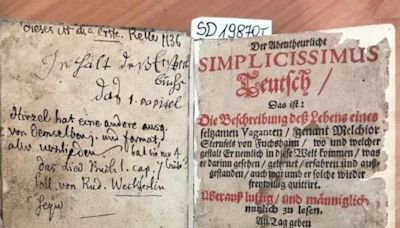 SD 19870T
dieses ist die erste. Keller 1136
Inhalt deß Ersten
Buchs
das 1. capitel
Hirzel hat eine andere ausg.
von demselben j. und format,
aber verschieden
das lied Buch 1. cap. 7
soll von Rud. Weckherlin
seyn
Der Abentheurliche
SIMPLICISSIMUS
Teutsch /
Das ist:
Die Beschreibung deß Lebens eines
seltzamen Vaganten / genant Melchior
Sternfels von Fuchshaim / wo und welcher
gestalt Er nemlich in diese Welt kommen / was
er darinn gesehen / gelernet / erfahren und auß-
gestanden / auch warumb er solche wieder
freywillig quittirt.
Überauß lustig / und männiglich
nutzlich zu lesen.
An Tag geben